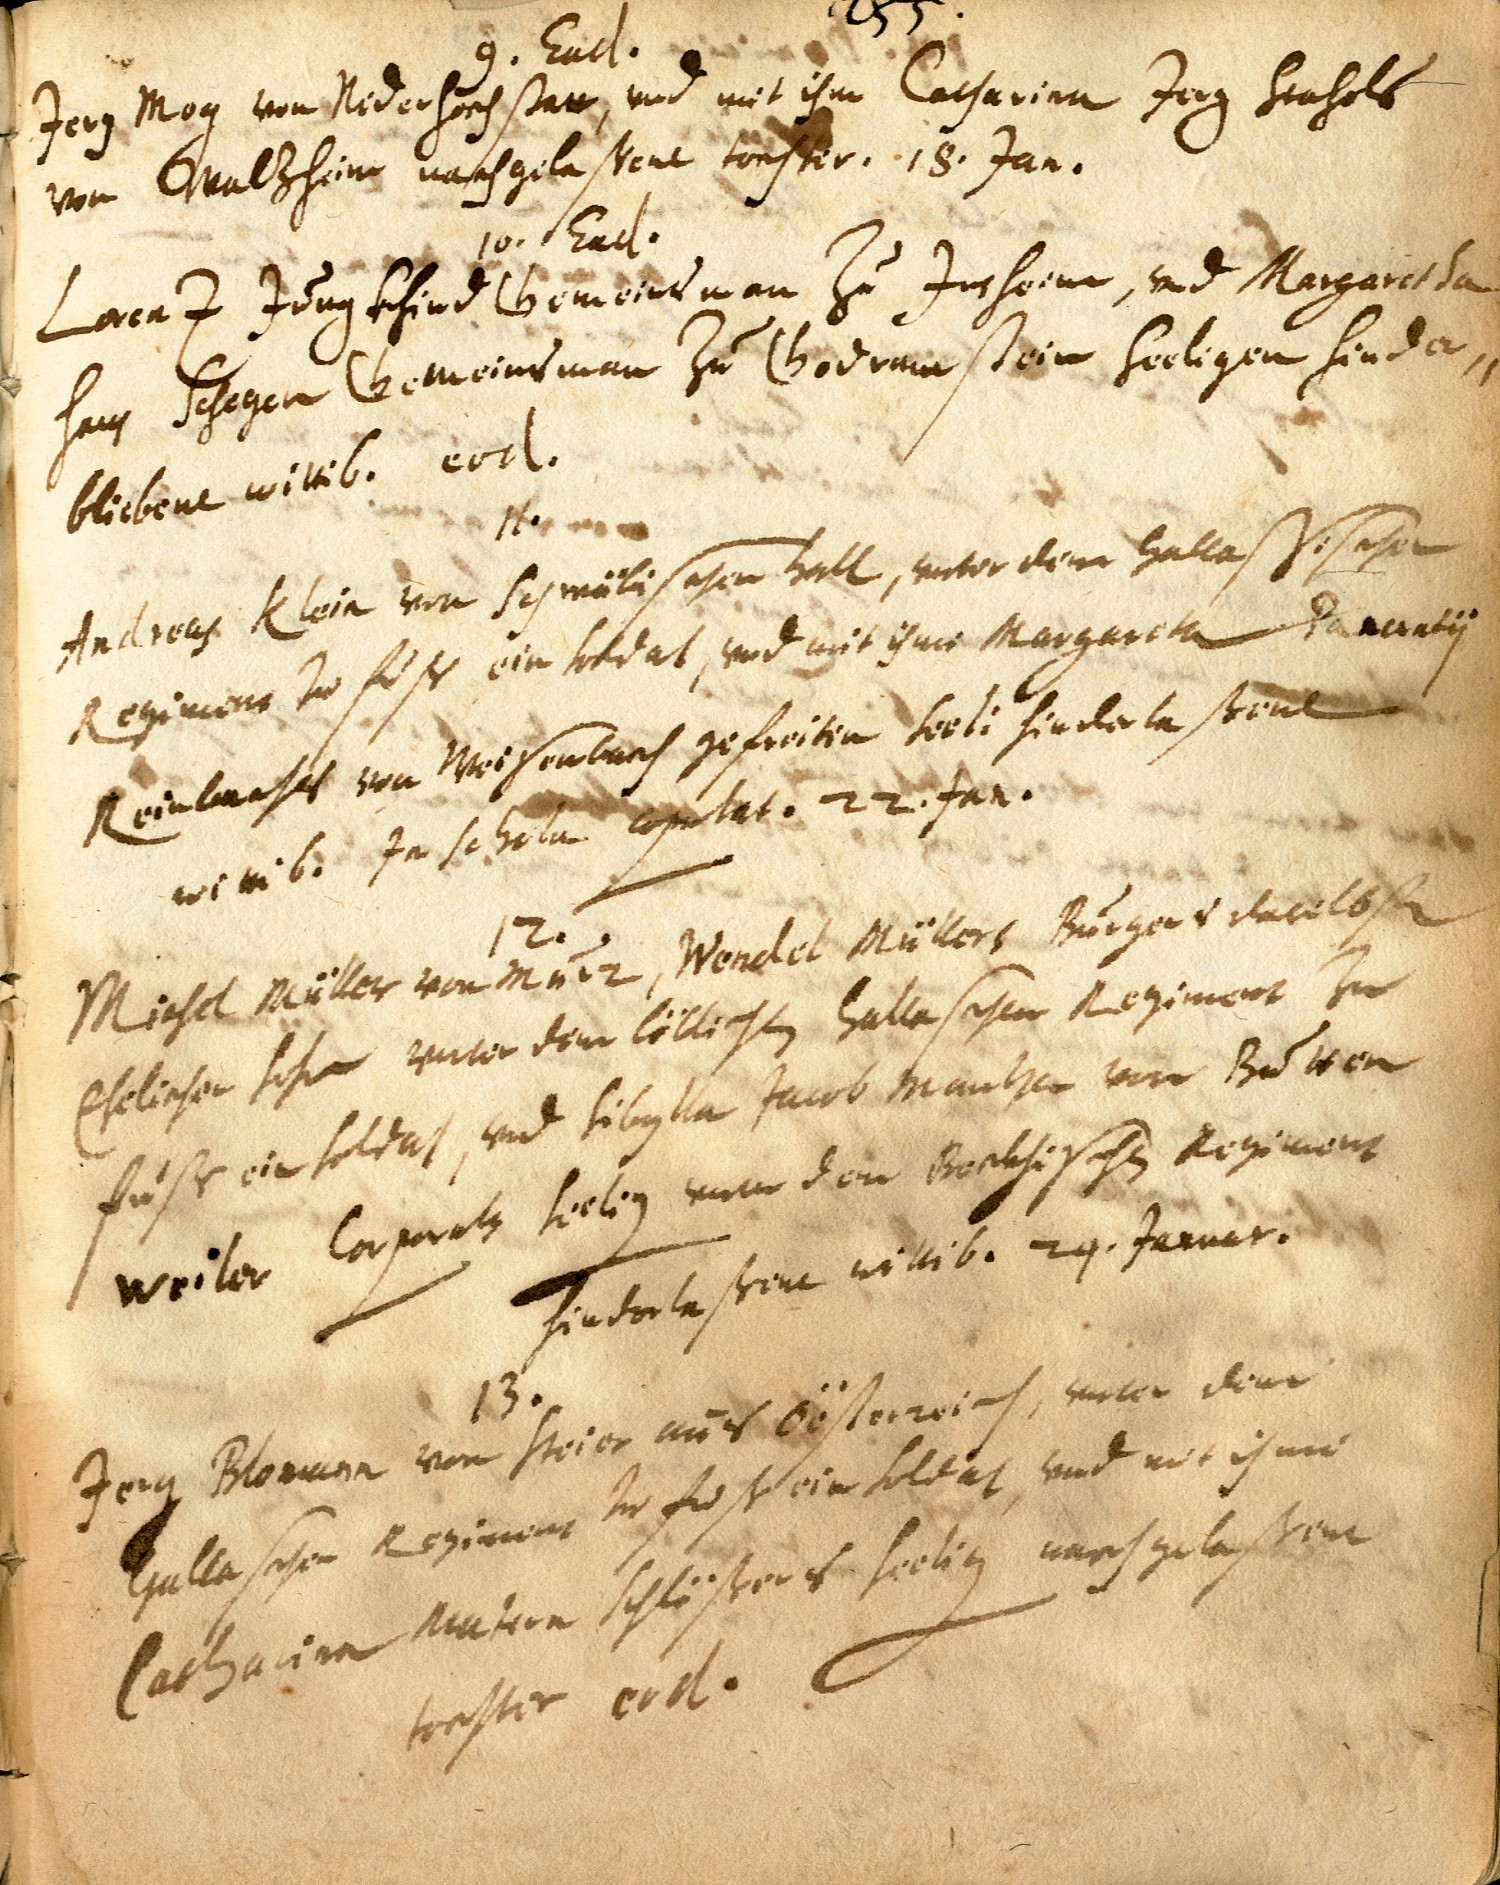 255.
9. Ead.
Jerg Mog von Niderhochstatt, vnd mit ihm Catharina Jerg
von Waltzheim nachgelaßene tochter. 18. Jan.
10. Ead.
Lorentz Jungkhind Gemeinsman Zu Insheim, vnd Margaretha
Hans Gemeinsman Zu Godramstein seeligen hinder„
bliebene wittib. eod.
11.
Andreas Klein von Schwäbischen Hall, vnter dem Gallassischen
Regiment zu fuß ein soldat, vnd mit ihme Margareta Pancratij
von Weisenbach gefreiten seeli hinderlaßene
wittib. In schola copulat. 22. Jan.
12.
Michel Müller von Mutz, Wendel Müllers Burgers daselbst
Ehelicher sohn vnter dem löblichen Gallaschen Regiment zu
fuß ein soldat, vnd Sibylla Jacob von Buswen
weiler Corporals seelig vnter dem Regiment
hinderlaßene wittib. 29. Januar.
13.
Jerg Blomann von Steier aus Österreich, vnter dem
Gallaschen Regiment zu fuß ein soldat, vnd mit ihme
Catharina Matern Schlößers seelig nachgelaßene
tochter eod.